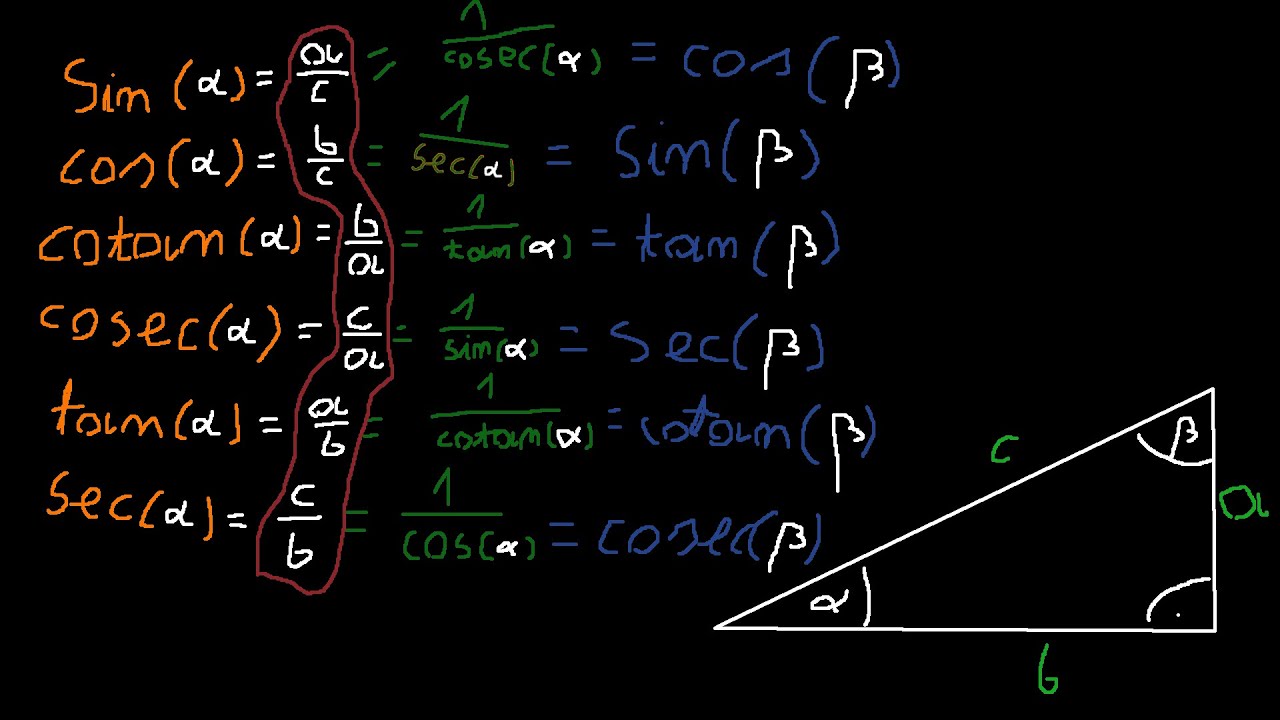 sin(α) = a/c = 1/cosec(α) = cos(β)
cos(α) = b/c = 1/sec(α) = sin(β)
cotan(α) = b/a = 1/tan(α) = tan(β)
cosec(α) = c/a = 1/sin(α) = sec(β)
tan(α) = a/b = 1/cotan(α) = cotan(β)
sec(α) = c/b = 1/cos(α) = cosec(β)
c
β
a
α
b